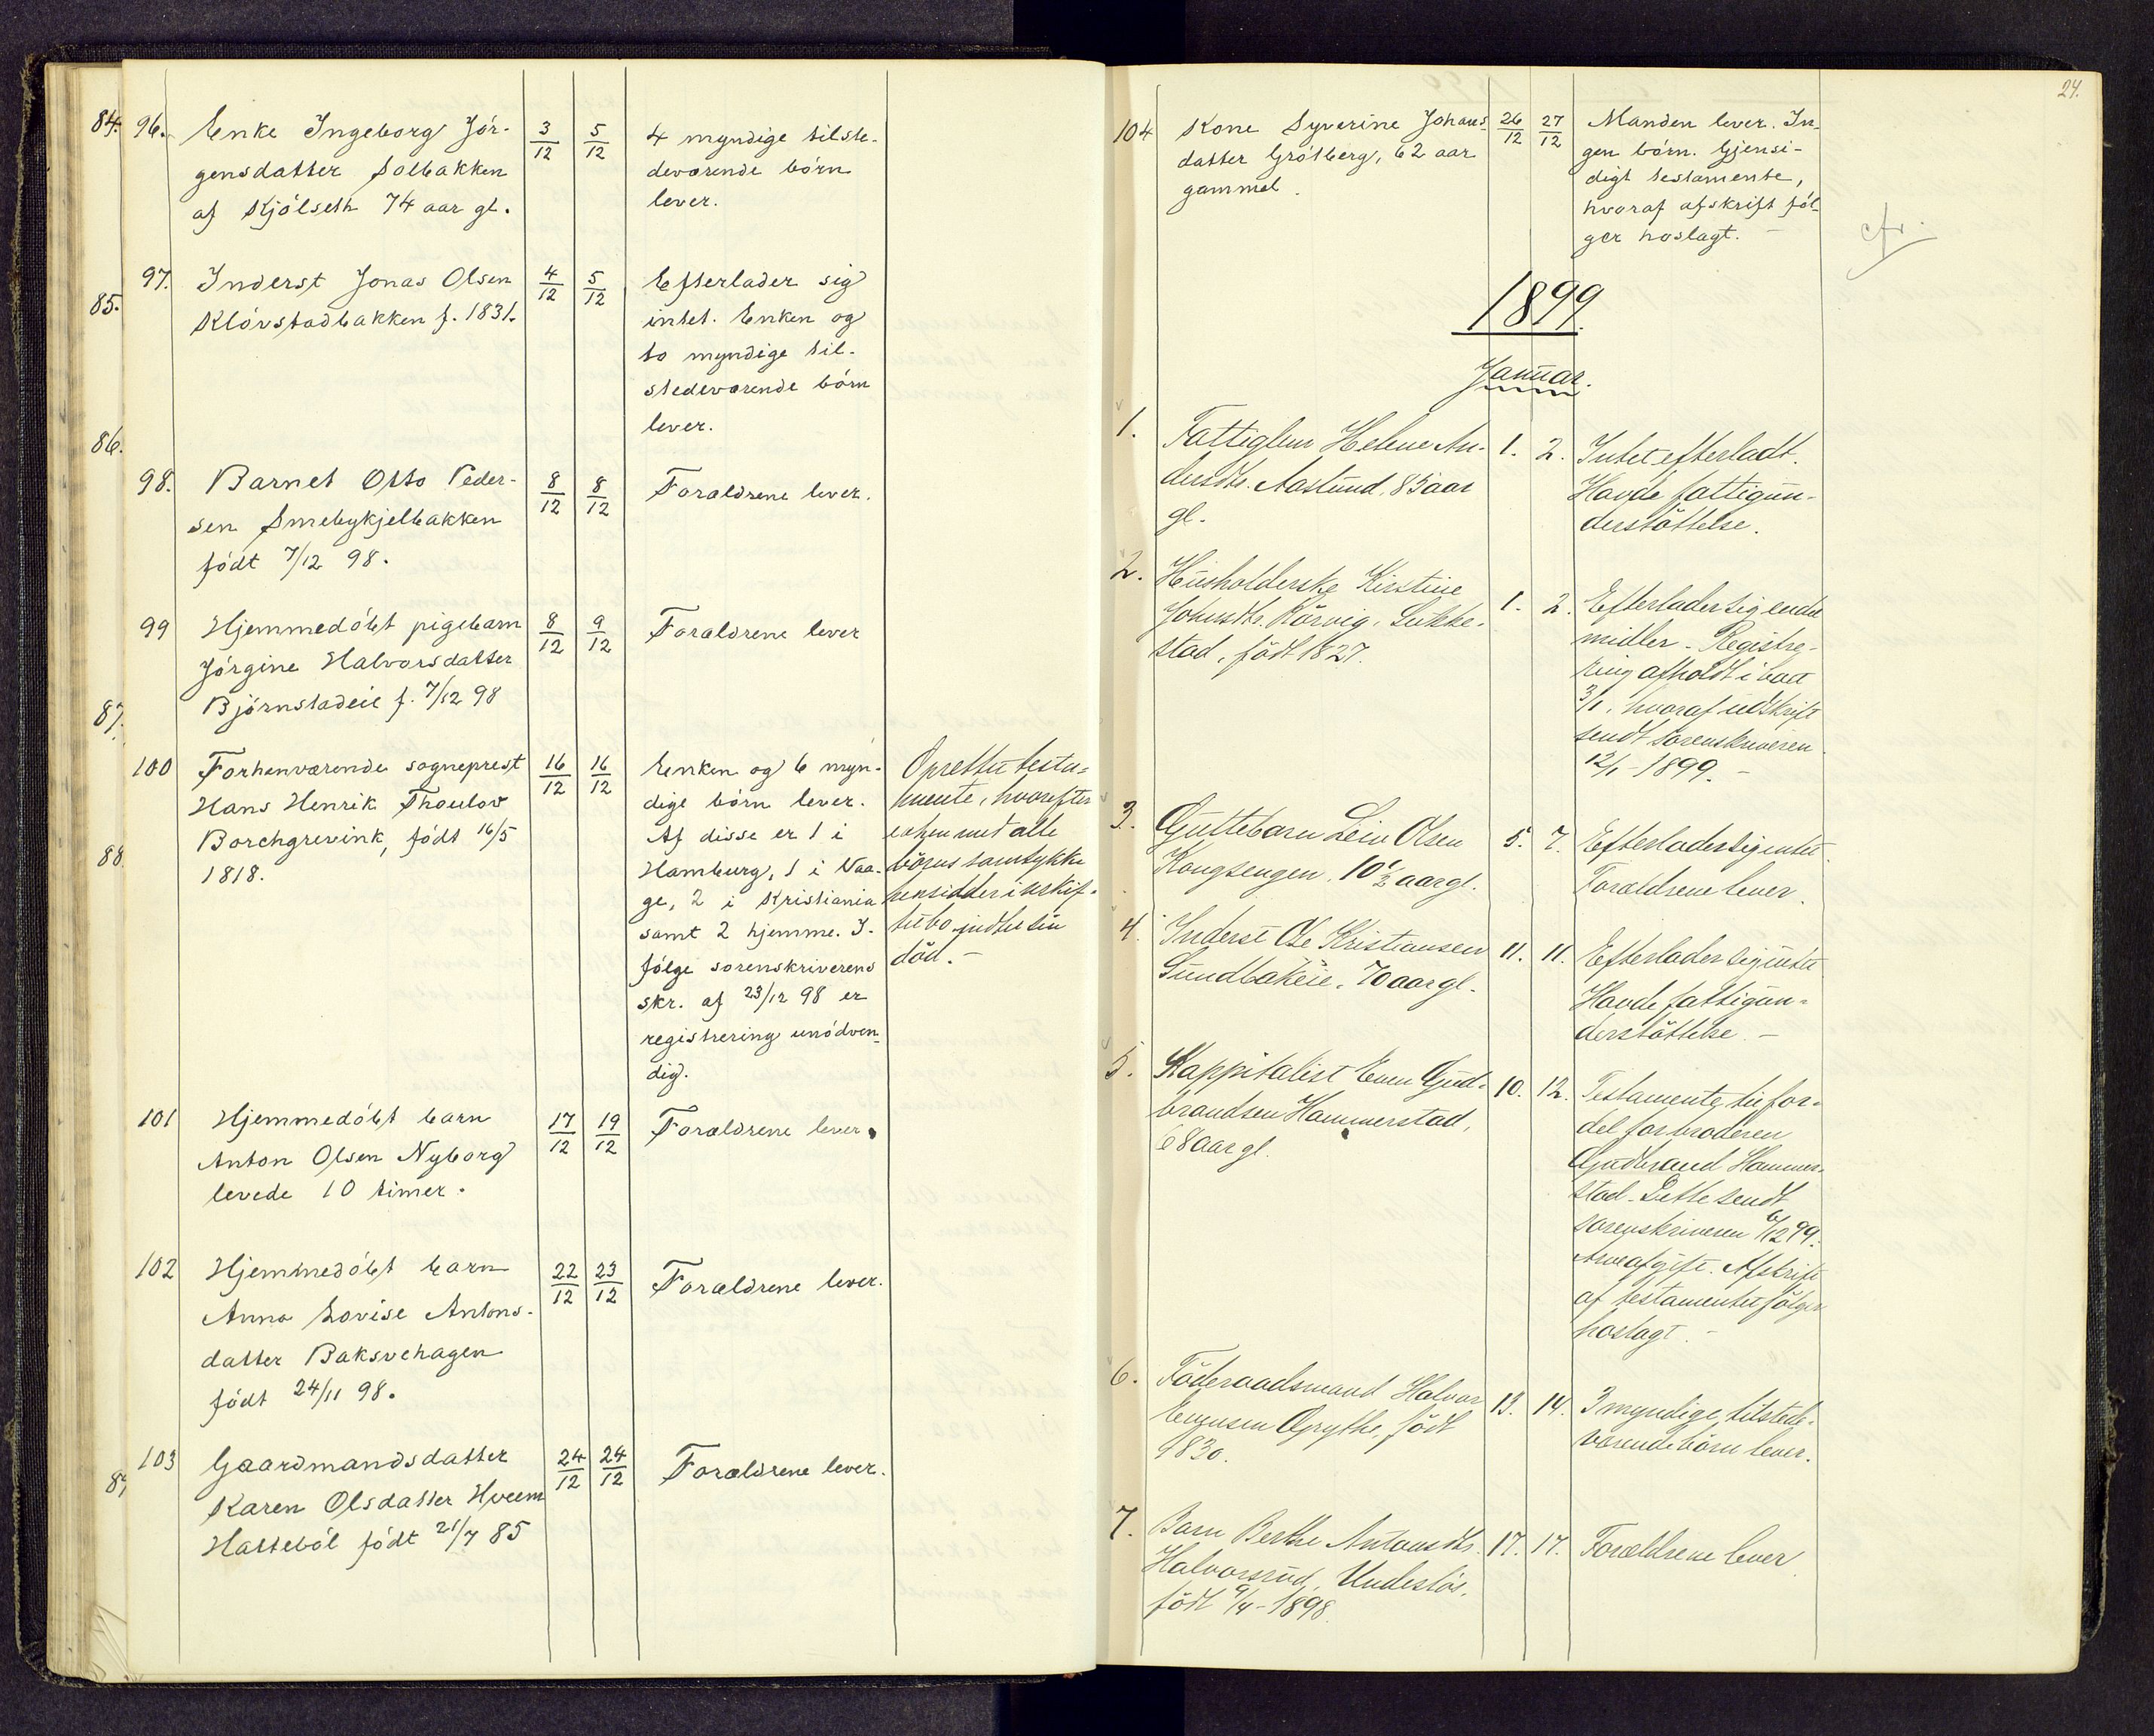 84.
85.
86.
87.
88.
89
96. Enke Ingeborg Jör-
gensdatter Solbakken
af Kjölseth 74 aar gl.
3/12 5/12
4 myndige tilste-
deværende börn
lever.
97. Inderst Jonas Olsen
Klövstadbakken f. 1831.
4/12 5/12
Efterlader sig
intet. Enken og
to myndige til-
stedeværende börn
lever.
98. Barnet Otto Peder-
sen Smebykjelbakken
födt 7/12 98.
8/12 8/12
Forældrene lever.
99 Hjemmedöbt pigebarn
Jörgine Halvorsdatter
Björnstadeie f. 7/12 98
8/12 9/12
Forældrene lever
100 Forhenværende sogneprest
Hans Henrik Thoulov
Borchgrevink, födt 16/5
1818.
16/12 16/12
Enken og 6 myn-
dige börn lever.
Af disse er 1 i
Hamburg, 1 i Vaa-
ge, 2 i Kristiania
samt 2 hjemme. I-
fölge sorenskriverens
skr. af 23/12 98 er
registrering unödven-
dig.
Oprettet testa-
mente, hvorefter
enken med alle
börns samtykke
hensidder i uskif-
tet bo indtil sin
död. -
101 Hjemmedöbt barn
Anton Olsen Nyborg
levede 10 timer.
17/12 19/12
Forældrene lever.
102 Hjemmedöbt barn
Anna Lovise Antons-
datter Baksvehagen
födt 24/11 98.
22/12 23/12
Forældrene lever.
103 Gaardmandsdatter
Karen Olsdatter Hveem
Hatteböl födt 21/7 85
24/12 24/12
Forældrene lever.
24.
104 Kone Syverine Johans
datter Grötberg, 62 aar
gammel.
26/12 27/12
Manden lever. In-
gen börn. Gjensi-
digt testamente,
hvoraf afskrift föl-
ger hoslagt. -
cfr.
1899.
Januar.
1. Fattiglem Helene An-
dersdtr. Aaslund, 83 aar
gl.
1. 2.
Intet efterladt.
Havde fattigun-
derstöttelse.
2. Husholderske Kirstine
Johnsdtr. Körvig, Lukke-
stad, födt 1827.
1. 2.
Efterlader sig endel
midler. Registre-
ring afholdt i boet
3/1, hvoraf udskrift
sendt sorenskriveren
12/1 - 1899. -
3. Guttebarn Leiv Olsen
Kongsengen, 10 1/2 aar gl.
5. 7.
Efterlader sig intet.
Forældrene lever.
4. Inderst Ole Kristiansen
Sundbakeie, 70 aar gl.
11. 11.
Efterlader sig intet
Havde fattigun-
derstöttelse. -
5. Kappitalist Even Gud-
brandsen Hammerstad,
68 aar gl.
10. 12.
Testamente til for-
del for broderen
Gudbrand Hammer-
stad. Dette sendt
sorenskriveren 6/12 99.
Arveafgift. Afskrift
af testamentet fölger
hoslagt. -
6. Föderaadsmand Halvor
Evensen Grythe, födt
1830.
13. 14.
3 myndige, tilstede-
værende börn lever.
7. Barn Berthe Antonsdtr.
Halvorsrud, Undeslös,
födt 9/4 - 1898.
17. 17.
Forældrene lever.